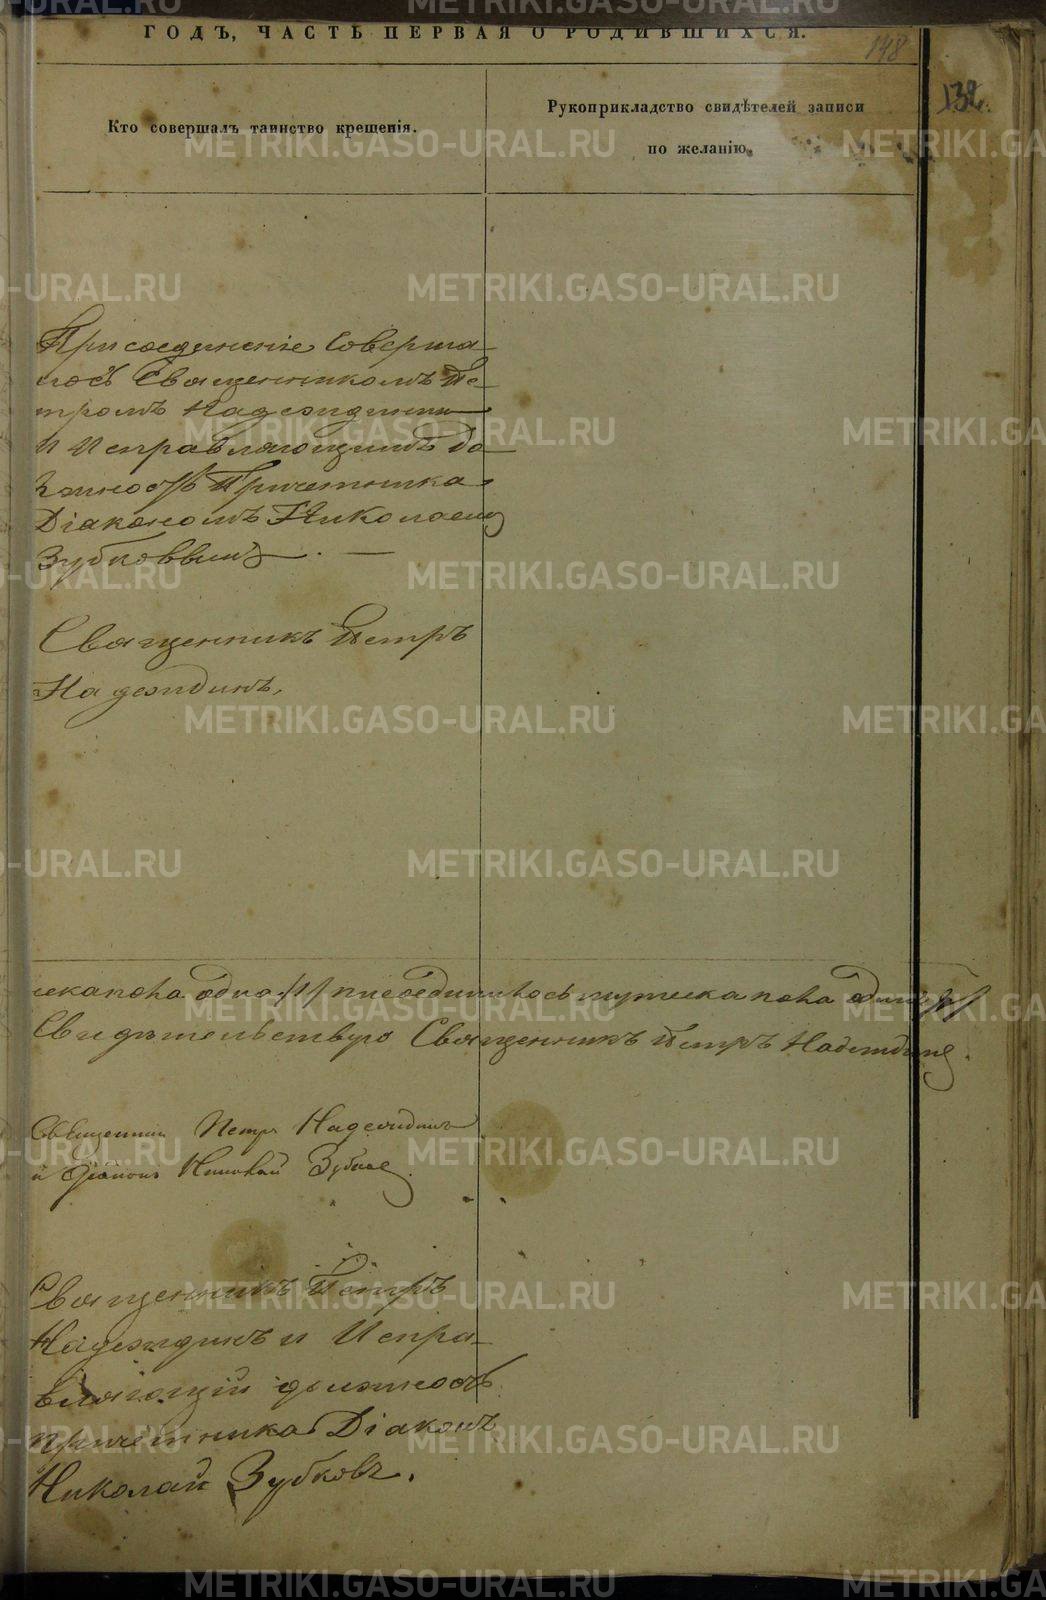 ГОДЪ, ЧАСТЬ ПЕРВАЯ О РОДИВШИХСЯ.
148
132.
Кто совершалъ таинство крещенія.
Рукоприкладство свидѣтелей записи
по желанію.
Присоединеніе Соверша-
лось Священникомъ Пе-
тромъ Надеждинымъ
И Исправляющимъ до-
лжность Причетника
Діакономъ Николаемъ
Зубковвымъ. —
Священникъ Петръ
Надеждинъ.
пола одна /1/ мужеска пола одинъ /1/
Свидѣтельствую Священникъ Петръ Надеждинъ.
Священникъ Петръ Надеждинъ
и Діаконъ Николай Зубковъ.
Священникъ Петръ
Надеждинъ и Испра-
вляющій должность
причетника Діаконъ
Николай Зубковъ.
METRIKI.GASO-URAL.RU